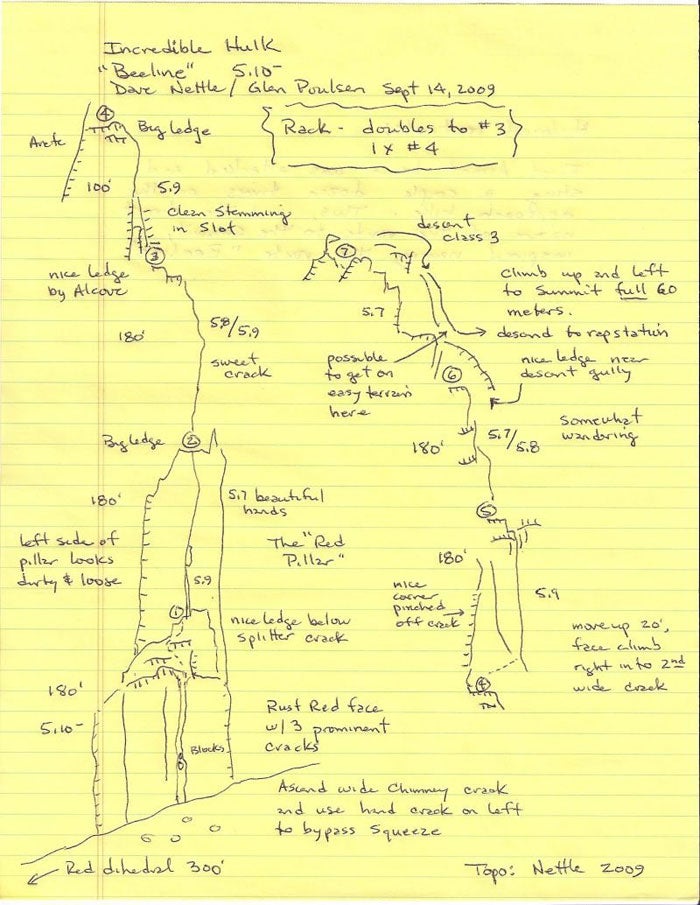 Incredible Hulk
"Beeline" 5.10-
Dave Nettle / Glen Poulsen Sept 14, 2009
Rack - doubles to #3
1 x #4
4
Big ledge
Arete
100'
5.9
clean Stemming
in Slot
3
nice ledge
by Alcove
180'
5.8/5.9
sweet
crack
Big ledge
2
180'
5.7 beautiful
hands
The "Red
Pillar"
left side of
pillar looks
dirty & loose
5.9
1
nice ledge below
splitter crack
180'
5.10-
Blocks
Rust Red face
w/ 3 prominent
cracks
Ascend wide Chimney crack
and use hand crack on left
to bypass Squeeze
Red dihedral 300'
7
descent
class 3
climb up and left
to Summit full 60
meters.
5.7
descend to rap station
possible
to get on
easy terrain
here
nice ledge near
descent gully
6
180'
5.7/5.8
somewhat
wandering
5
180'
nice
corner
pinched
off crack
5.9
move up 20',
face climb
right in to 2nd
wide crack
4
Topo: Nettle 2009